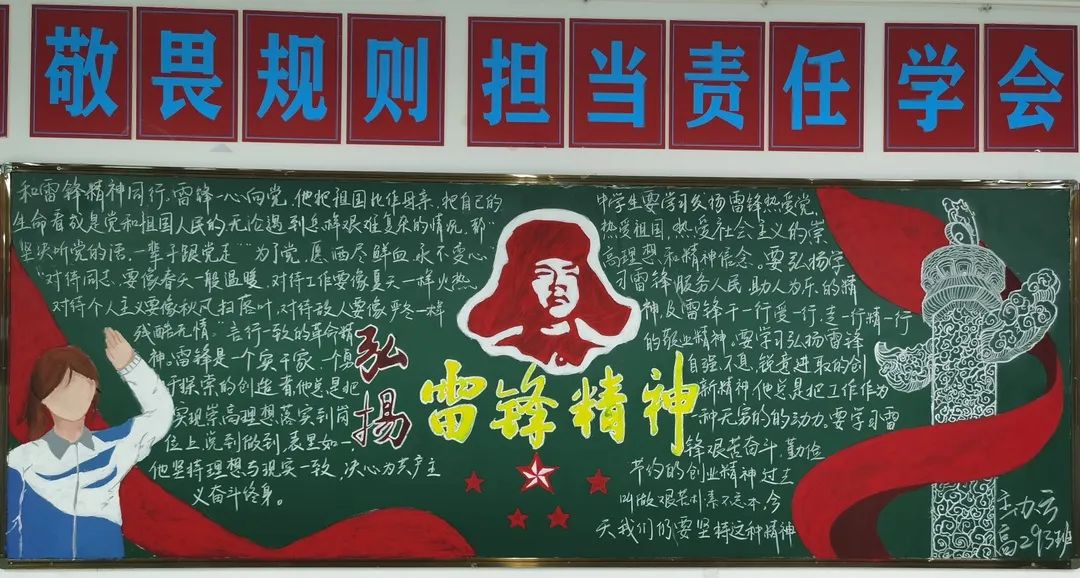 敬畏规则 担当责任 学会
和雷锋精神同行,雷锋一心向党,他把祖国比作母亲,把自己的
生命看成是党和祖国人民的无论遇到怎样艰难复杂的情况,都
坚决听党的话,一辈子跟党走“为了党,愿洒尽鲜血,永不变心”
“对待同志,要像春天一般温暖,对待工作要像夏天一样火热
对待个人主义要像秋风扫落叶,对待敌人要像严冬一样
残酷无情”言行一致的革命精
神。雷锋是一个实干家,一个勇
于探索的创造者他总是把
实现崇高理想落实到岗
位上说到做到,表里如一,
他坚持理想与现实一致,决心为共产主
义奋斗终身。
弘揚
雷锋精神
中学生要学习发扬雷锋热爱党,
热爱祖国,热爱社会主义的崇
高理想和精神信念。要弘扬学
习雷锋服务人民,助人为乐的精
神,及雷锋干一行爱一行,专一行精一行
的敬业精神,要学习弘扬雷锋
自强不息,锐意进取的创
新精神他总是把工作作为
一种无穷的的动力,要学习雷
锋艰苦奋斗,勤俭
节约的创业精神过去
叫做艰苦朴素不忘本,今
天我们仍要坚持这种精神
主办方
高293班